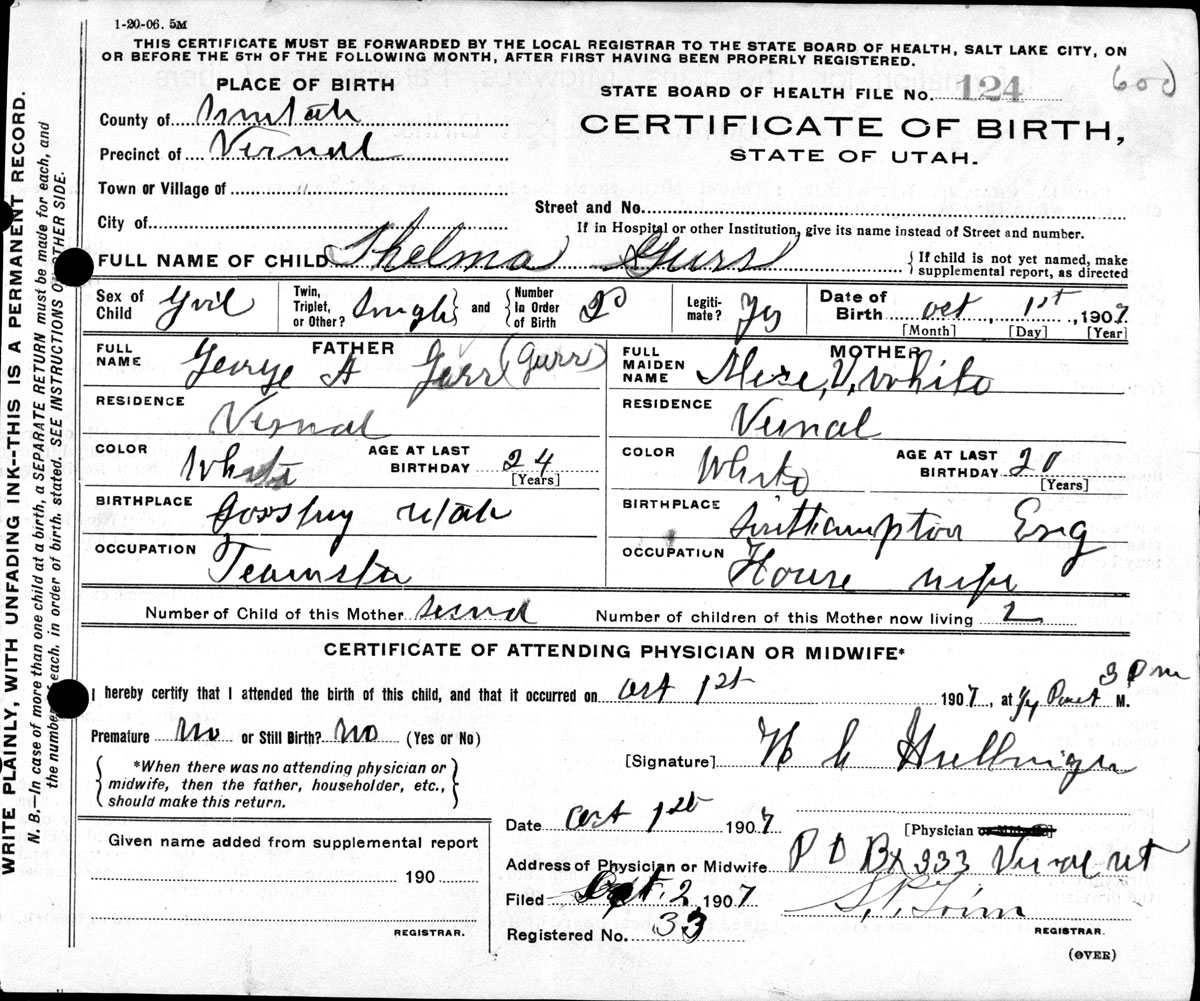 1-20-06. 5M
THIS CERTIFICATE MUST BE FORWARDED BY THE LOCAL REGISTRAR TO THE STATE BOARD OF HEALTH, SALT LAKE CITY, ON
OR BEFORE THE 5TH OF THE FOLLOWING MONTH, AFTER FIRST HAVING BEEN PROPERLY REGISTERED.
600
PLACE OF BIRTH
STATE BOARD OF HEALTH FILE No. 124
County of Uintah
CERTIFICATE OF BIRTH,
STATE OF UTAH.
Precinct of Vernal
Town or Village of "
Street and No.
City of
If in Hospital or other Institution, give its name instead of Street and number.
FULL NAME OF CHILD Thelma Gurr
{ If child is not yet named, make
supplemental report, as directed
Sex of Child Girl
Twin, Triplet, or Other? Single and Number In Order of Birth 2D
Legitimate? Yes
Date of Birth Oct 1st, 1907
[Month] [Day] [Year]
FATHER
FULL NAME George A Garr (Gurr)
RESIDENCE Vernal
COLOR White AGE AT LAST BIRTHDAY 24
[Years]
BIRTHPLACE Utah
OCCUPATION Teamster
MOTHER
FULL MAIDEN NAME V, White
RESIDENCE Vernal
COLOR White AGE AT LAST BIRTHDAY 20
[Years]
BIRTHPLACE Southampton Eng
OCCUPATION House wife
Number of Child of this Mother second Number of children of this Mother now living 2
CERTIFICATE OF ATTENDING PHYSICIAN OR MIDWIFE*
I hereby certify that I attended the birth of this child, and that it occurred on Oct 1st 1907, at 1/4 Past 3 P m M.
Premature No or Still Birth? No (Yes or No)
[Signature] H C Hullinger
*When there was no attending physician or
midwife, then the father, householder, etc.,
should make this return.
Date Oct 1st 1907
[Physician or Midwife]
Given name added from supplemental report
190
REGISTRAR.
Address of Physician or Midwife P O Bx 933 Vernal Ut
Filed Oct. 2, 1907
REGISTRAR.
Registered No. 33
(OVER)
WRITE PLAINLY, WITH UNFADING INK--THIS IS A PERMANENT RECORD.
N. B.—In case of more than one child at a birth, a SEPARATE RETURN must be made for each, and
the number of each, in order of birth, stated. SEE INSTRUCTIONS ON OTHER SIDE.